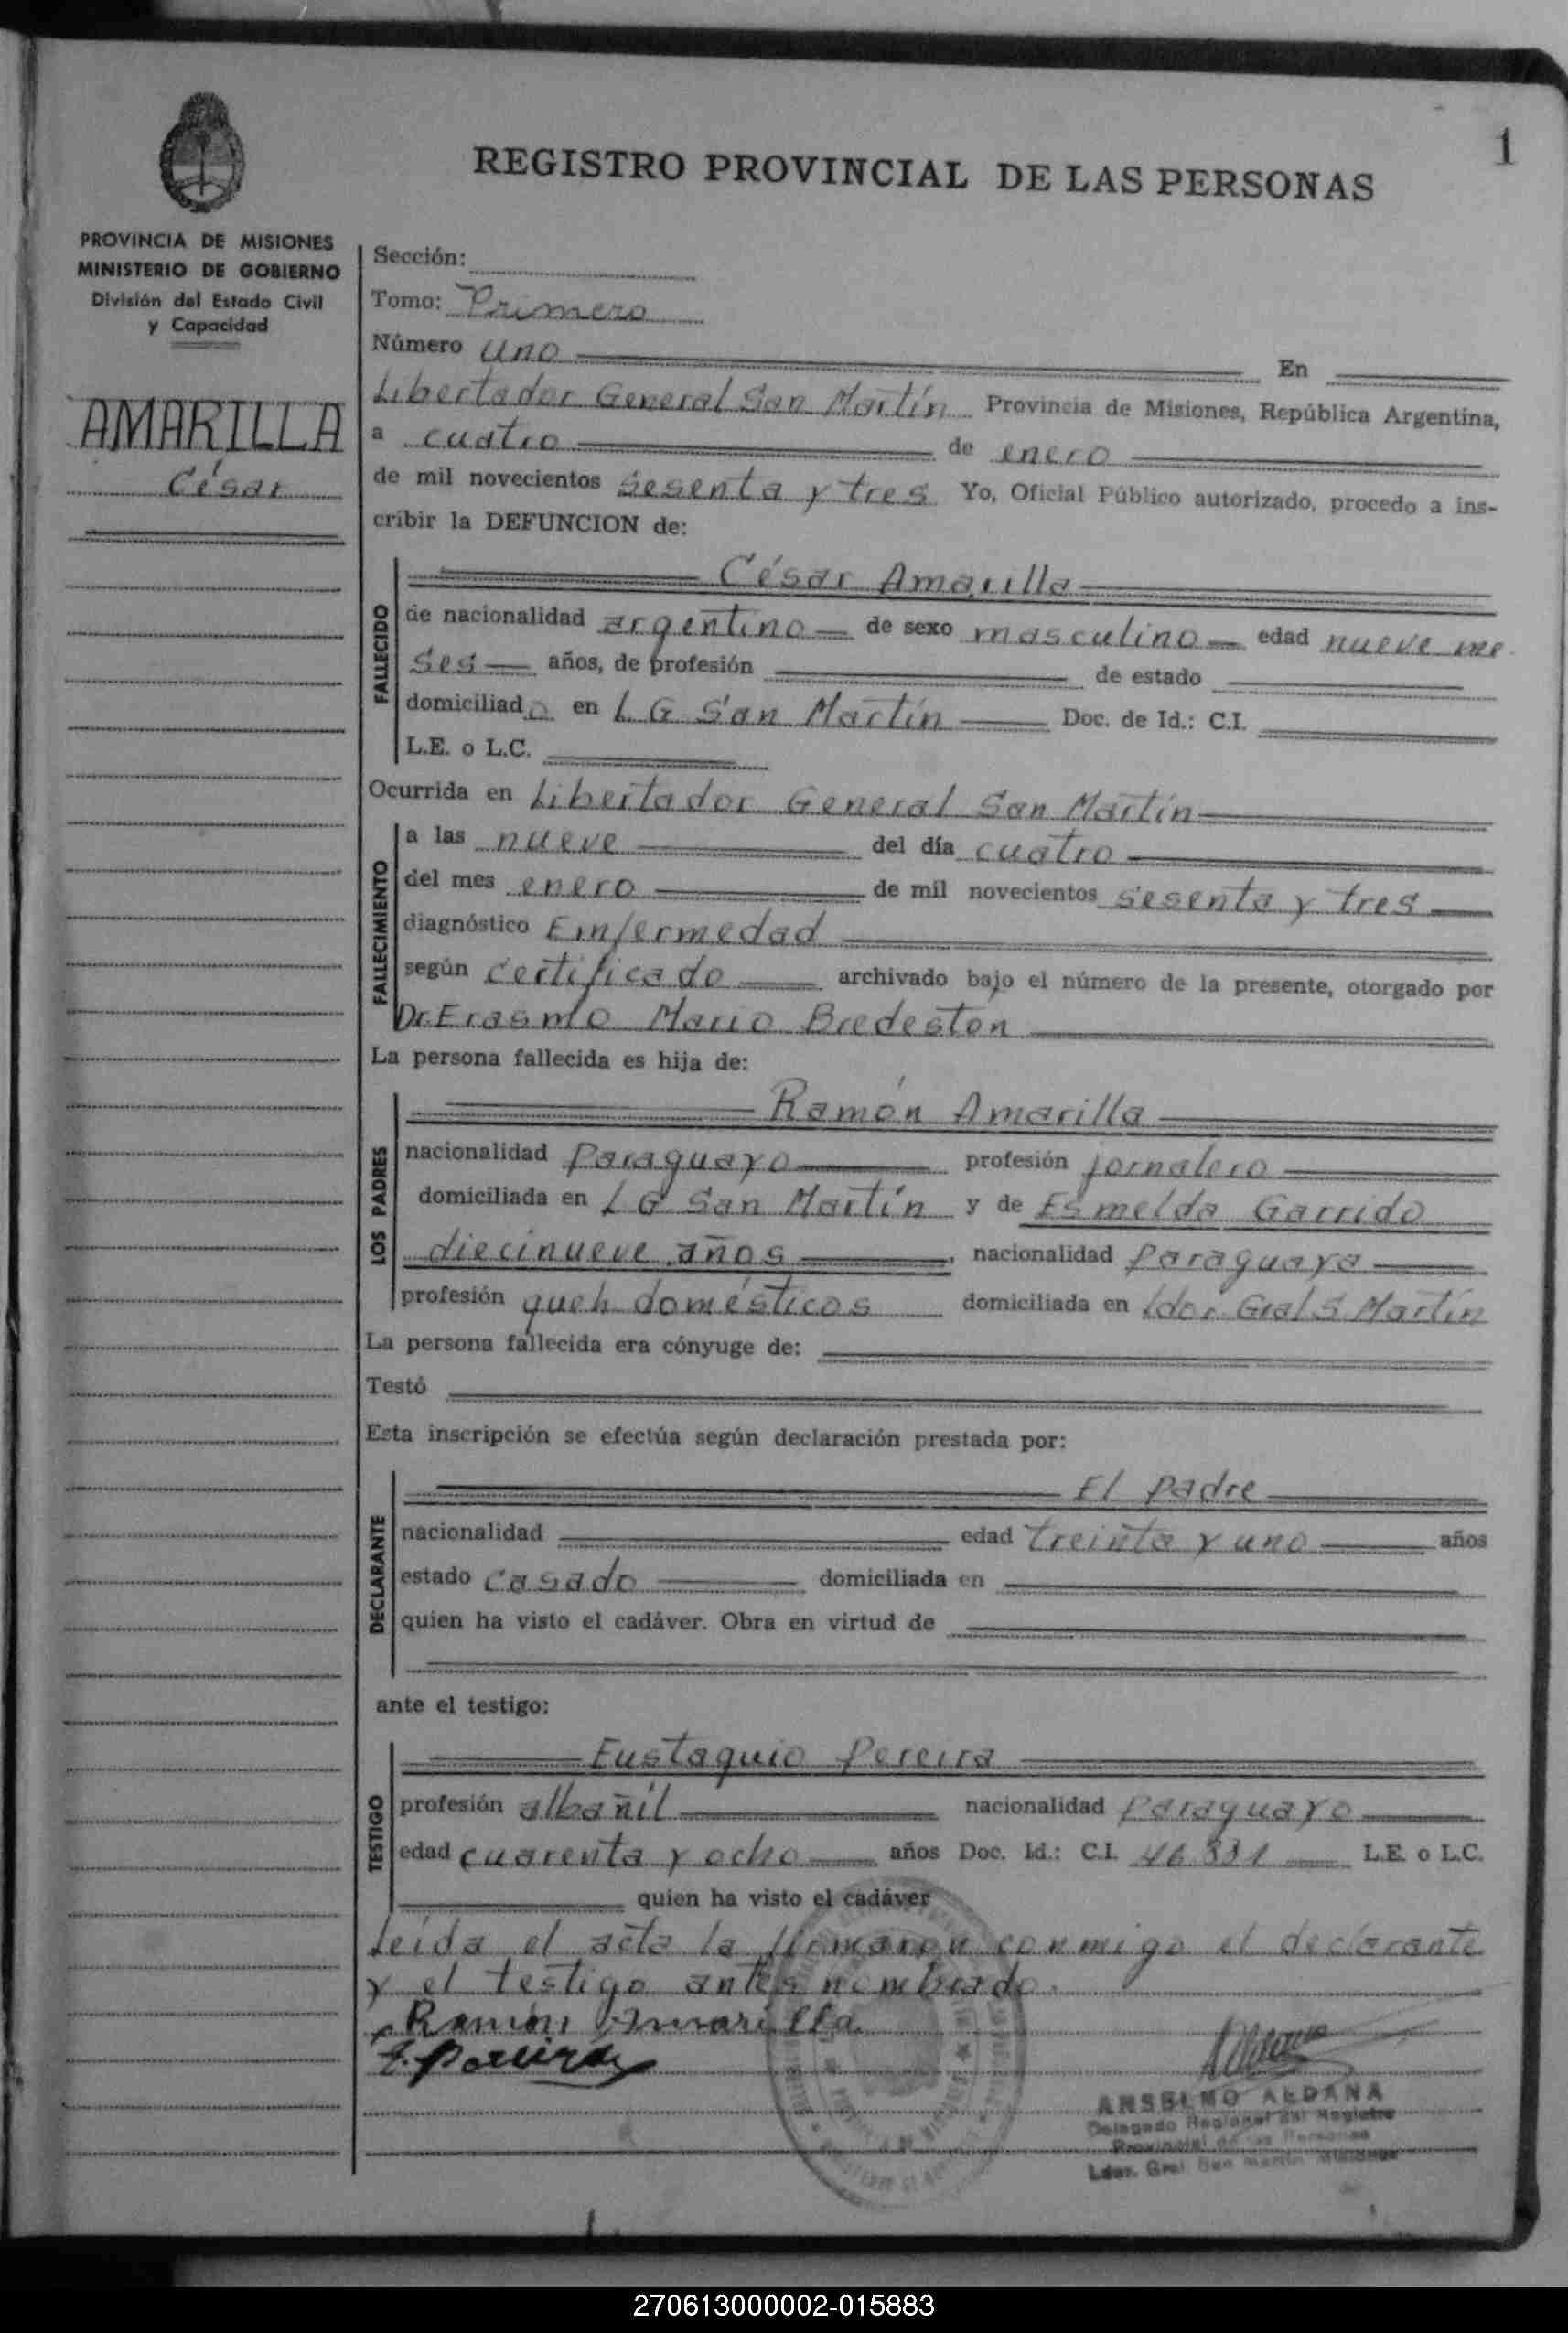 1
REGISTRO PROVINCIAL DE LAS PERSONAS
PROVINCIA DE MISIONES
MINISTERIO DE GOBIERNO
División del Estado Civil
y Capacidad
AMARILLA
César
Sección:
Tomo: Primero
Número uno En
Libertador General San Martín Provincia de Misiones, República Argentina,
a cuatro de enero
de mil novecientos sesenta y tres Yo, Oficial Público autorizado, procedo a ins-
cribir la DEFUNCION de:
FALLECIDO
César Amarilla
de nacionalidad argentino de sexo masculino edad nueve me
ses años, de profesión de estado
domiciliado en L G San Martín Doc. de Id.: C.I.
L.E. o L.C.
Ocurrida en Libertador General San Martín
FALLECIMIENTO
a las nueve del día cuatro
del mes enero de mil novecientos sesenta y tres
diagnóstico Emfermedad
según certificado archivado bajo el número de la presente, otorgado por
Dr. Erasmo Mario Bredeston
La persona fallecida es hija de:
LOS PADRES
Ramón Amarilla
nacionalidad Paraguayo profesión jornalero
domiciliada en L G San Martín y de Esmelda Garrido
diecinueve años, nacionalidad Paraguaya
profesión queh domésticos domiciliada en Ldor Gral S Martín
La persona fallecida era cónyuge de:
Testó
Esta inscripción se efectúa según declaración prestada por:
DECLARANTE
El padre
nacionalidad edad treinta y uno años
estado casado domiciliada en
quien ha visto el cadáver. Obra en virtud de
ante el testigo:
TESTIGO
Eustaquio Pereira
profesión albañil nacionalidad Paraguayo
edad cuarenta y ocho años Doc. Id.: C.I. 46.331 L.E. o L.C.
quien ha visto el cadáver
Leída el acta la firmaron conmigo el declarante
y el testigo antes nombrado.
Ramón Amarilla
E. Pereira
ANSELMO ALDANA
Delegado Regional del Registro
Provincial de las Personas
Ldor. Gral San Martín Misiones
270613000002-015883